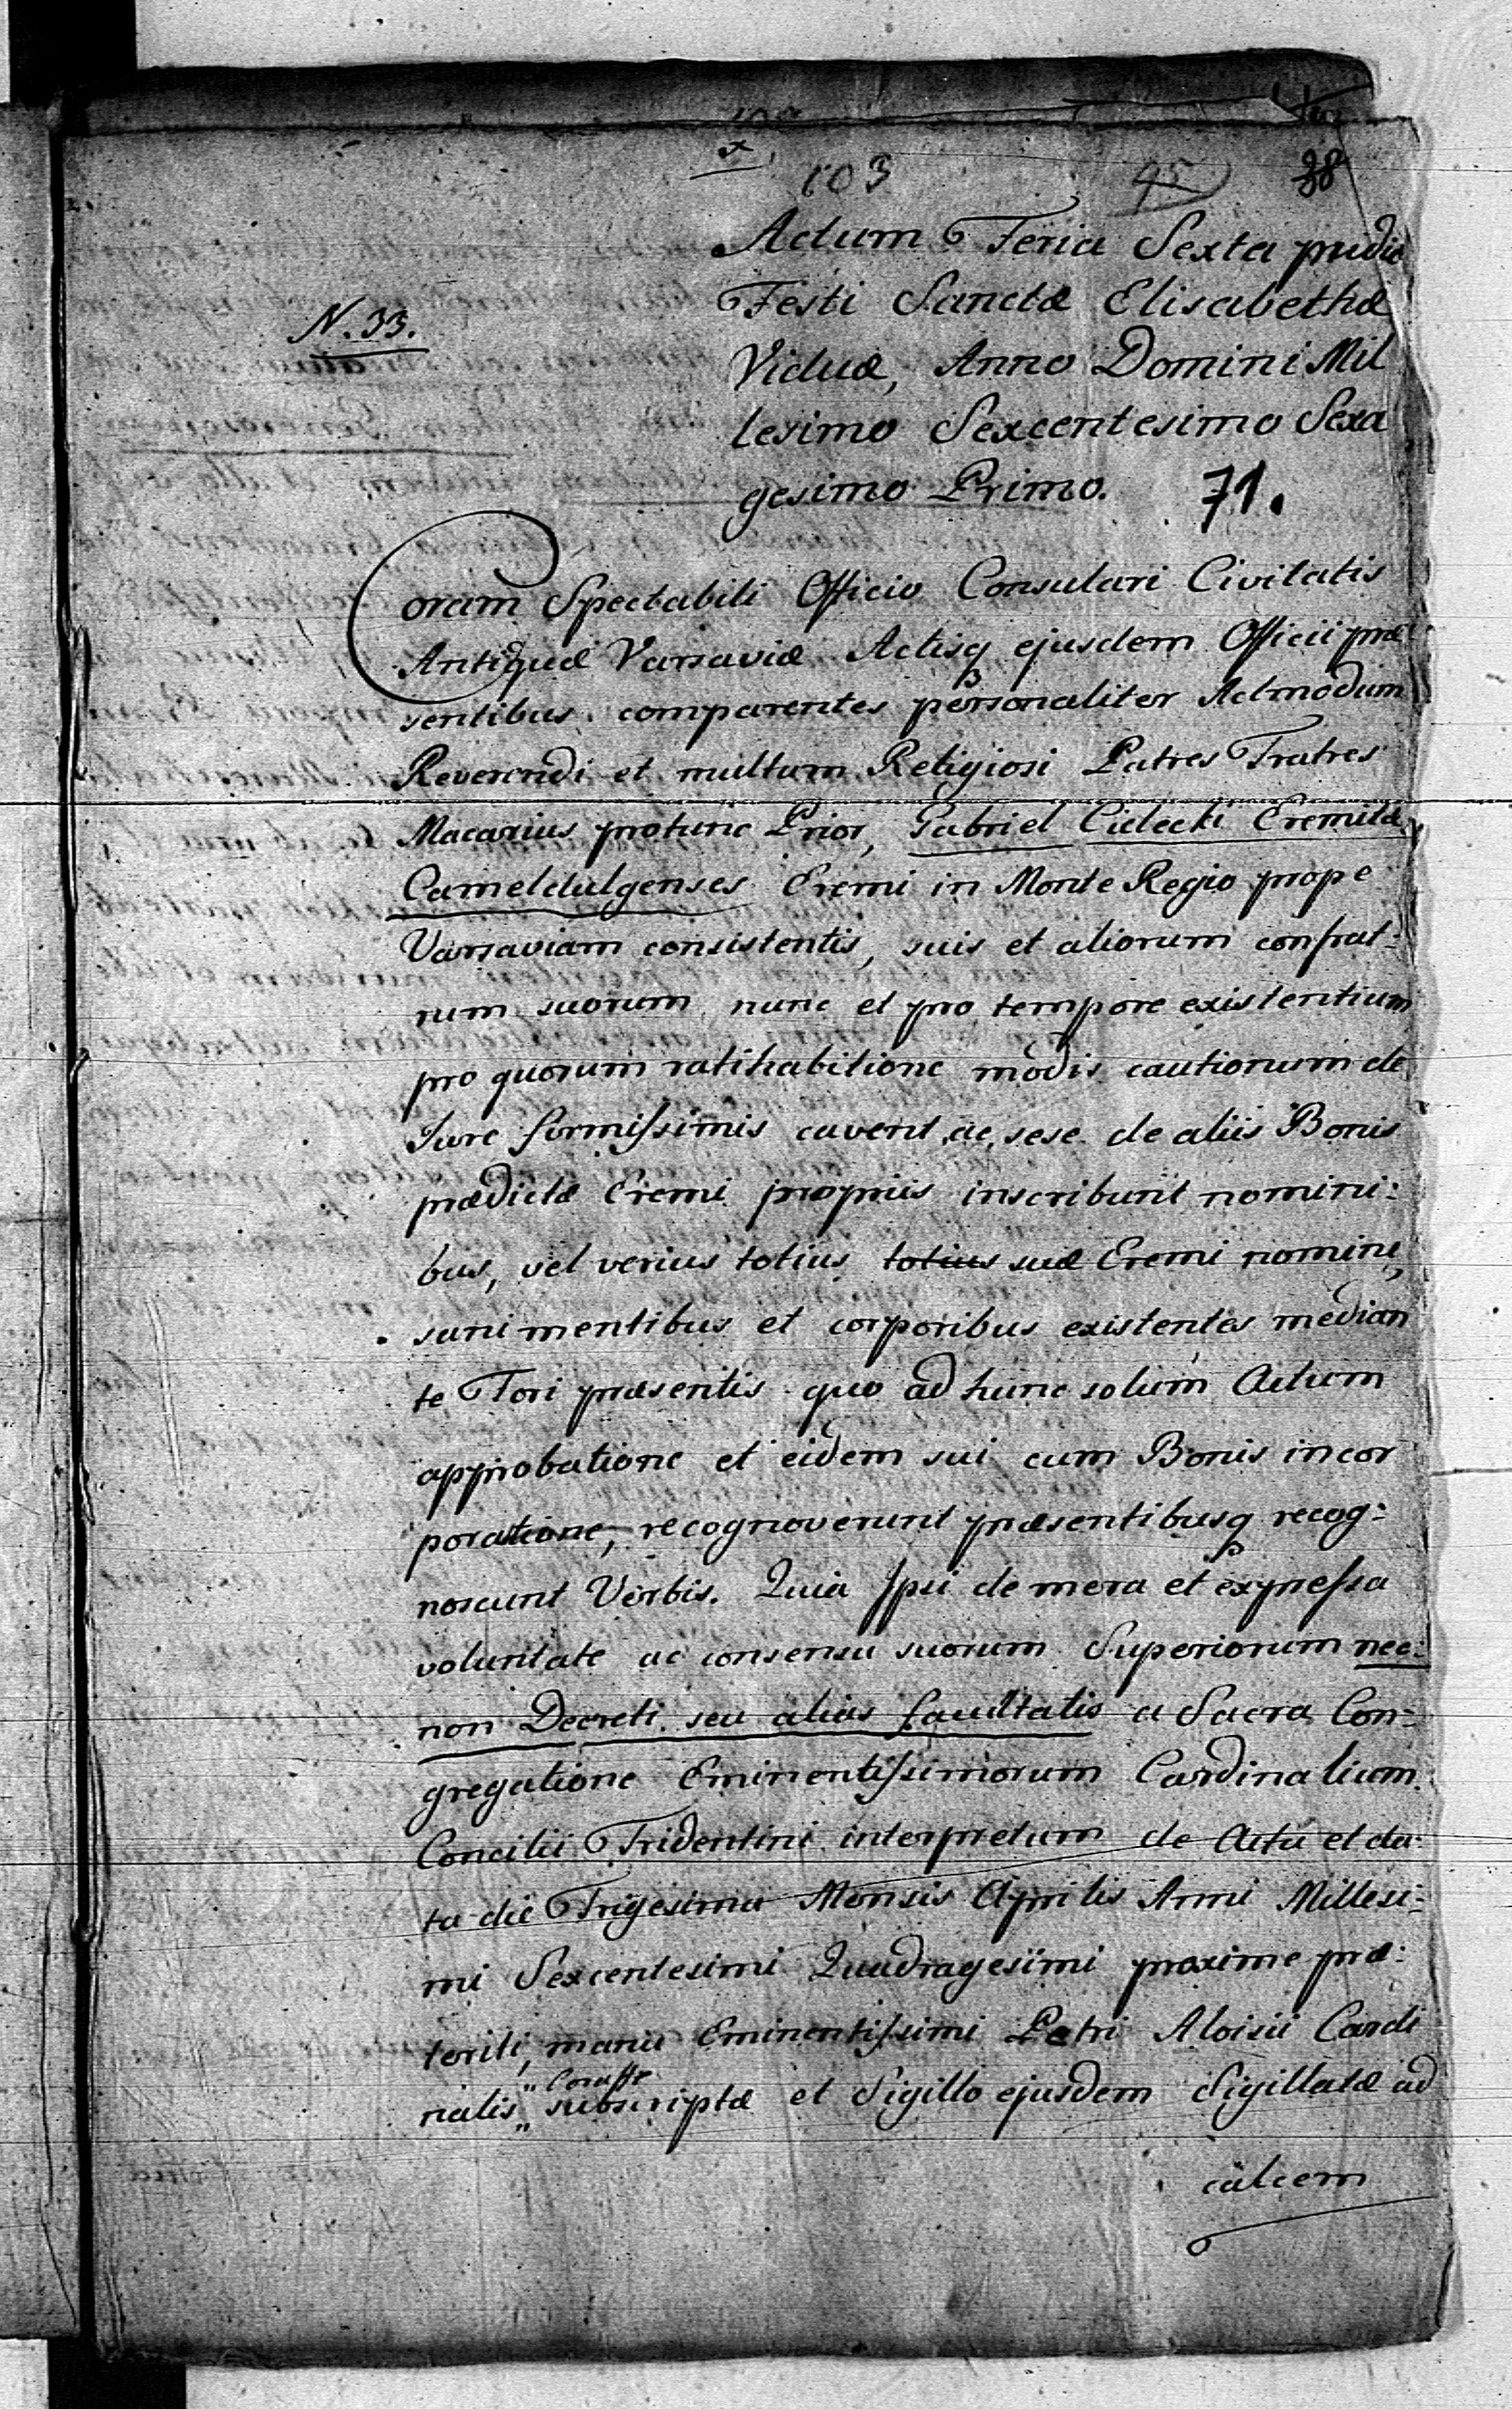 103 95 88
Actum Feria Sexta pridie
Festi Sanctæ Elisabethæ
N. 33.
Viduæ, Anno Domini Mil
lesimo Sexcentesimo Sexa
gesimo Primo. 71.
Coram Spectabili Officio Consulari Civitatis
Antiquæ Varsaviæ Actisq ejusdem Officii præ
sentibus comparentes personaliter Admodum
Reverendi et multum Religiosi Patres Fratres
Macarius protunc Prior, Gabriel Cielecki Eremitæ
Cameldulgenses Eremi in Monte Regio prope
Varsaviam consistentis, suis et aliorum confrat-
rum suorum nunc et pro tempore existentium
pro quorum ratihabitione modis cautiorum de
Jure firmissimis cavent ac sese de aliis Bonis
prædictæ Eremi propriis inscribunt nomini:
bus, vel verius totius totius suæ Eremi nomine,
sani mentibus et corporibus existentes median
te Fori præsentis quo ad hunc solum Actum
approbatione et eidem sui cum Bonis incor
poratione, recognoverunt præsentibusq recog:
noscunt Verbis. Quia Ipsi de mera et expressa
voluntate ac consensu suorum Superiorum nec:
non Decreti seu alias facultatis a Sacra Con:
gregatione Eminentissimorum Cardinalium
Concilii Tridentini interpretum de Actu et da:
ta die Trigesima Mensis Aprilis Anni Millesi:
mi Sexcentesimi Quadragesimi proxime præ:
teriti, manu Eminentissimi Petri Aloisii Cardi
nalis „ subscriptæ et Sigillo ejusdem Sigillatæ ad
calcem